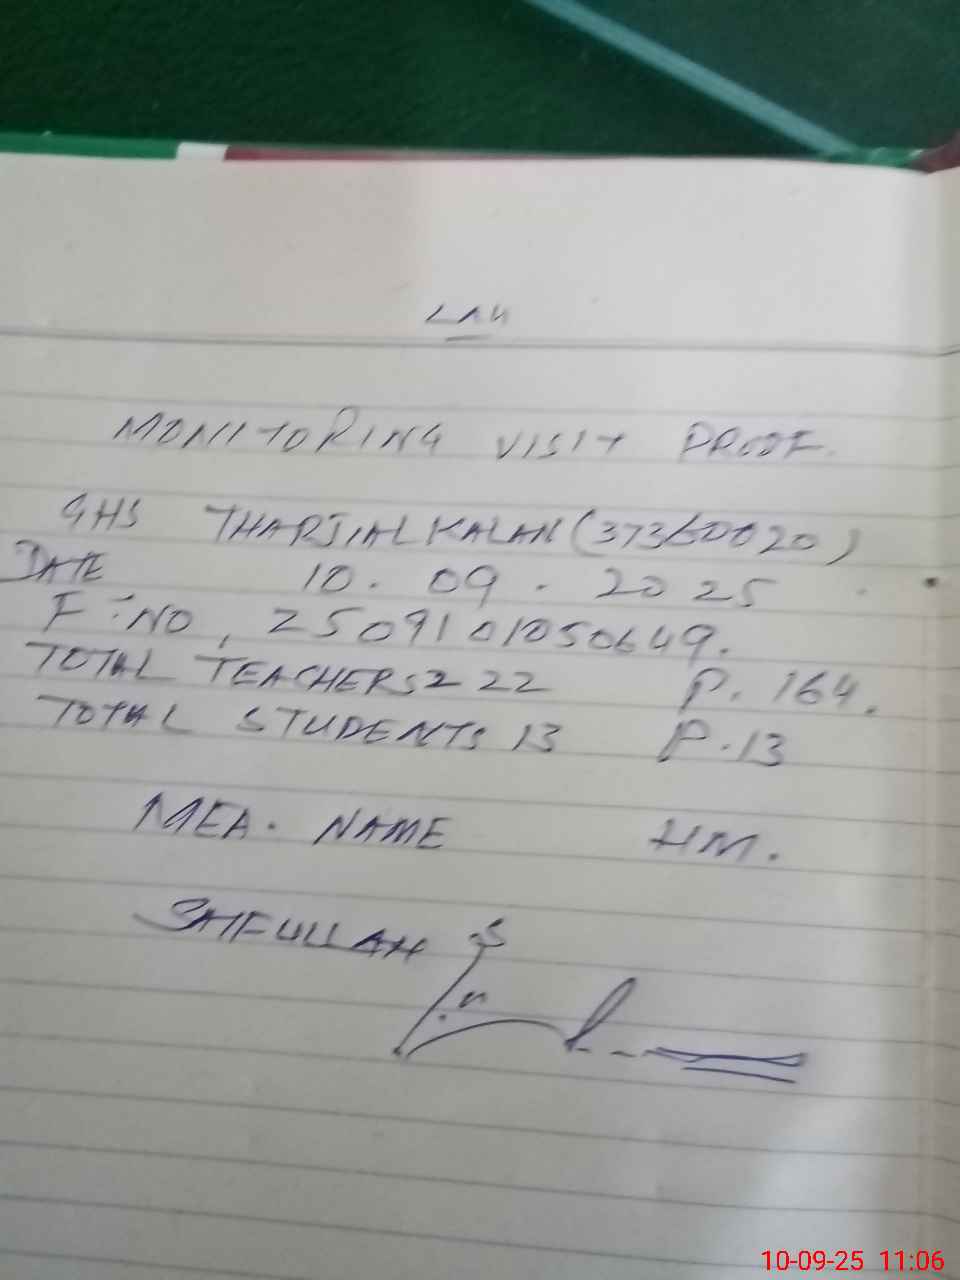 LAH
MONITORING VISIT PROOF.
GHS THARJIALKALAN (37360020)
DATE 10. 09. 2025
F:NO, 2509101050649.
TOTAL TEACHERS 22 P. 164.
TOTAL STUDENTS 13 P.13
MEA. NAME HM.
SHFULLAH
10-09-25 11:06